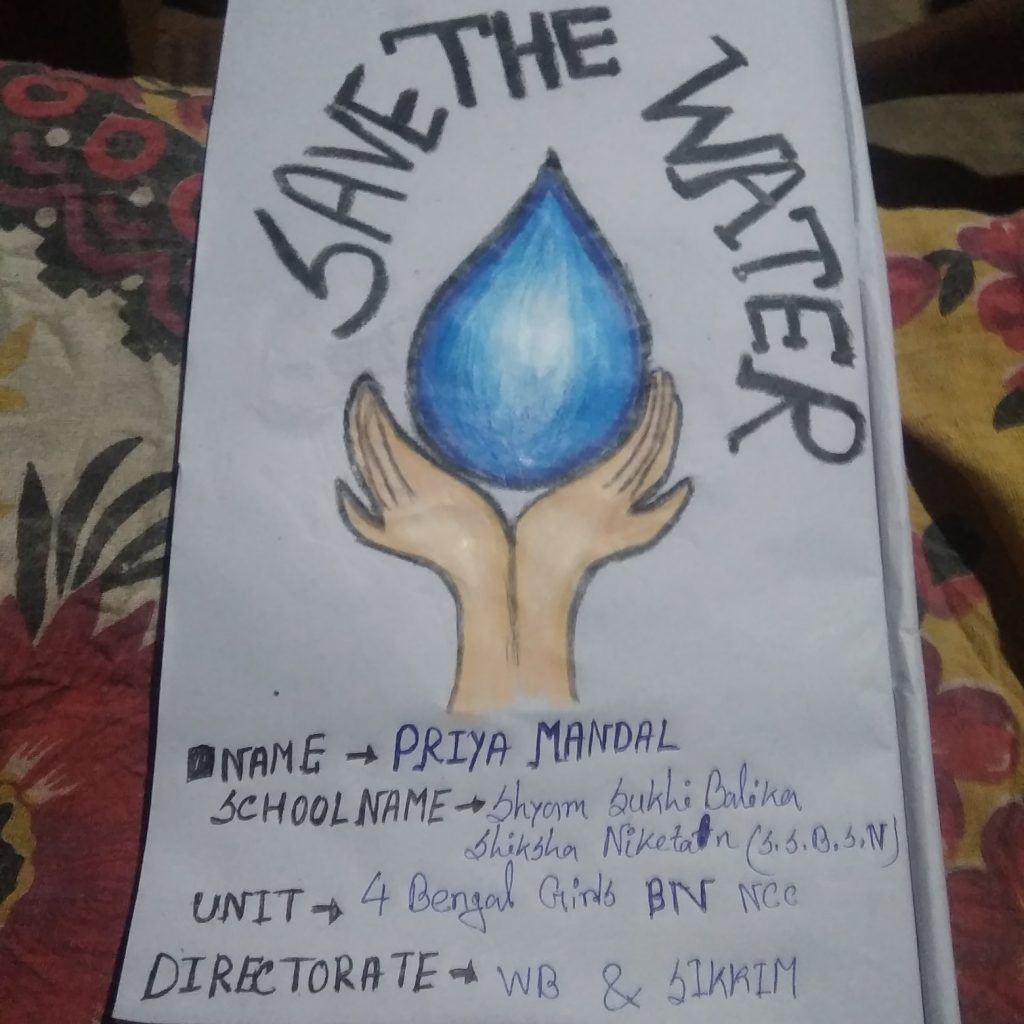 SAVE THE WATER
NAME → PRIYA MANDAL
SCHOOL NAME → Shyam Sukhi Balika
Shiksha Niketan (S.S.B.S.N)
UNIT → 4 Bengal Girls BN NCC
DIRECTORATE → WB & SIKKIM